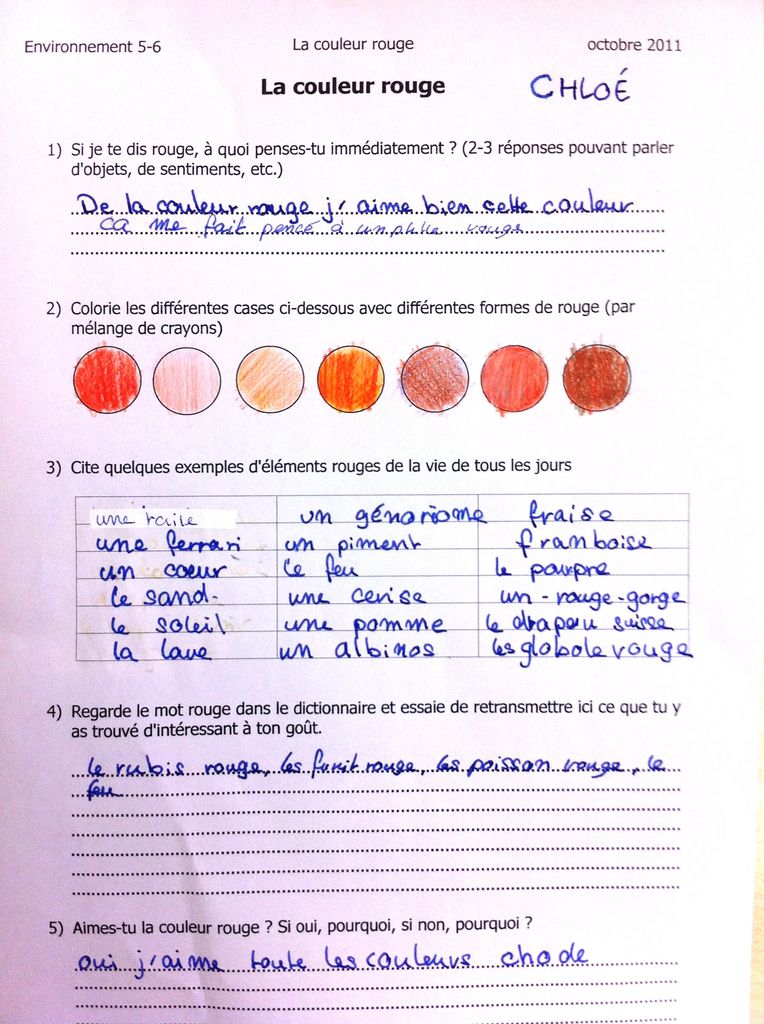 Environnement 5-6 La couleur rouge octobre 2011
La couleur rouge CHLOÉ
1) Si je te dis rouge, à quoi penses-tu immédiatement ? (2-3 réponses pouvant parler
d'objets, de sentiments, etc.)
De la couleur rouge j'aime bien cette couleur
ca me fait pencé à un rouge
2) Colorie les différentes cases ci-dessous avec différentes formes de rouge (par
mélange de crayons)
3) Cite quelques exemples d'éléments rouges de la vie de tous les jours
une un génoriome fraise
une ferrari un piment franboise
un coeur le feu le pourpre
le sand. une cerise un-rouge-gorge
le soleil une pomme le drapeau suisse
la lave un albinos les globole rouge
4) Regarde le mot rouge dans le dictionnaire et essaie de retransmettre ici ce que tu y
as trouvé d'intéressant à ton goût.
le rubis rouge, les fruit rouge, les poisson rouge, le
feu
5) Aimes-tu la couleur rouge ? Si oui, pourquoi, si non, pourquoi ?
oui j'aime toute les couleurs chode